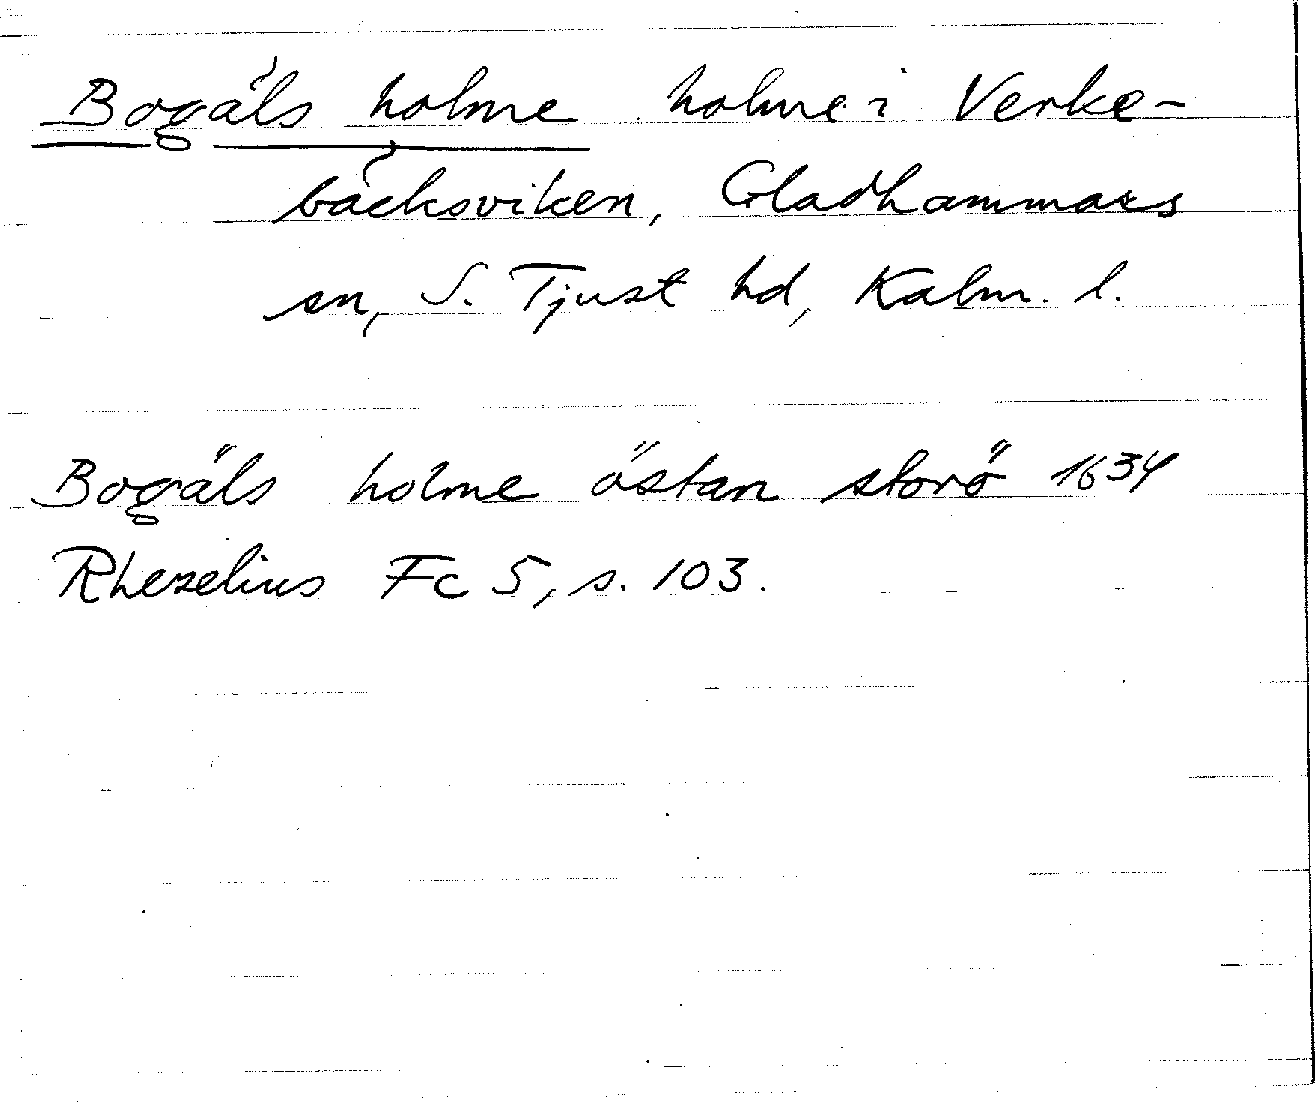 Bogåls holme holme i Verke-
bäcksviken, Gladhammars
sn, S. Tjust hd, Kalm. l.
Bogäls holme östan storö 1634
Rhezelius Fc 5, s. 103.